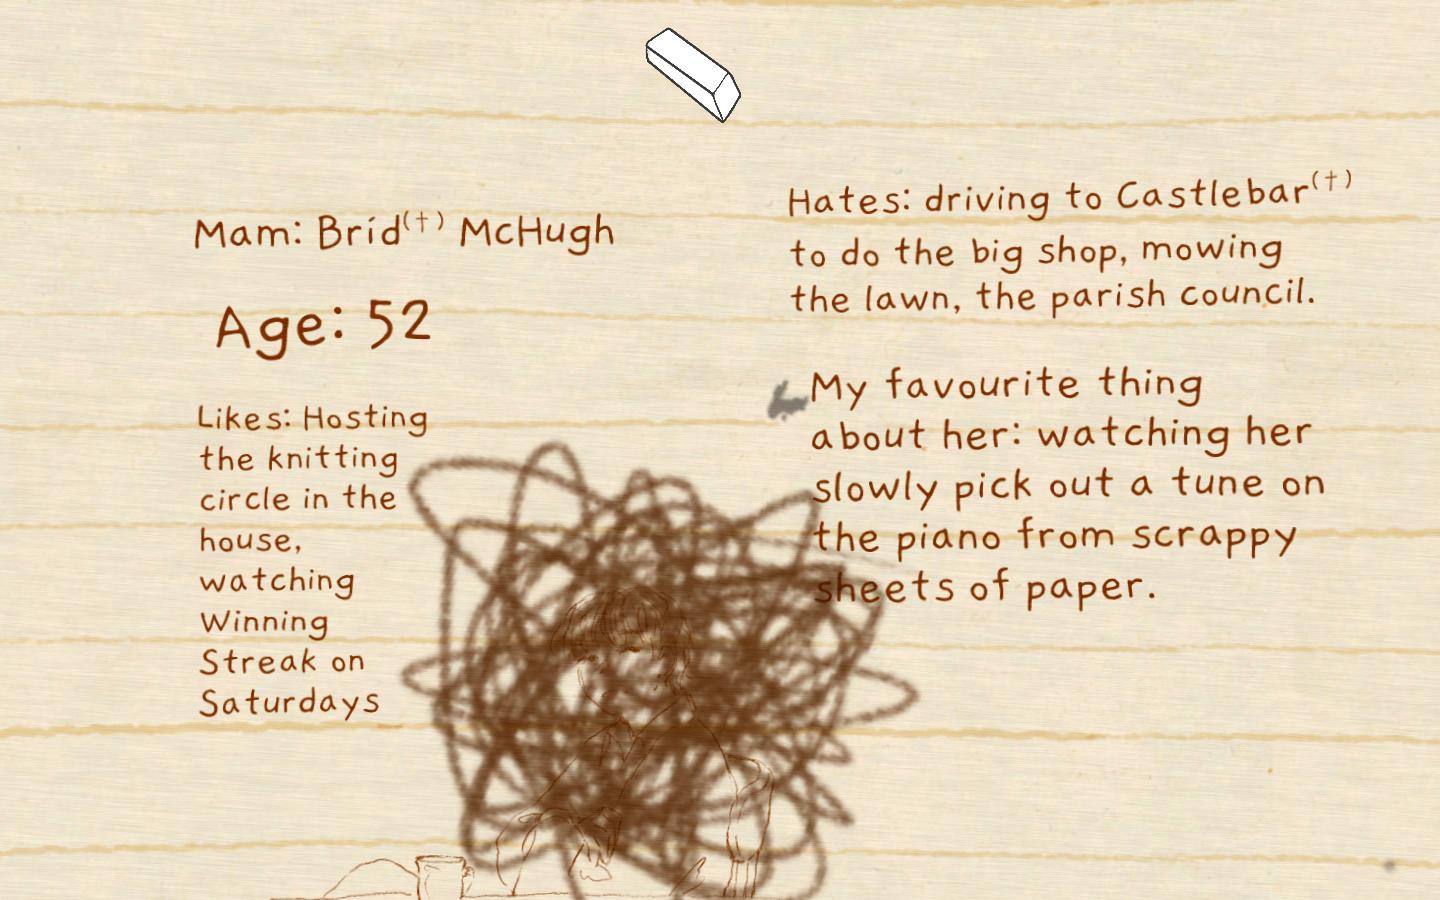 Mam: Bríd(†) McHugh
Age: 52
Likes: Hosting
the knitting
circle in the
house,
watching
Winning
Streak on
Saturdays
Hates: driving to Castlebar(†)
to do the big shop, mowing
the lawn, the parish council.
My favourite thing
about her: watching her
slowly pick out a tune on
the piano from scrappy
sheets of paper.